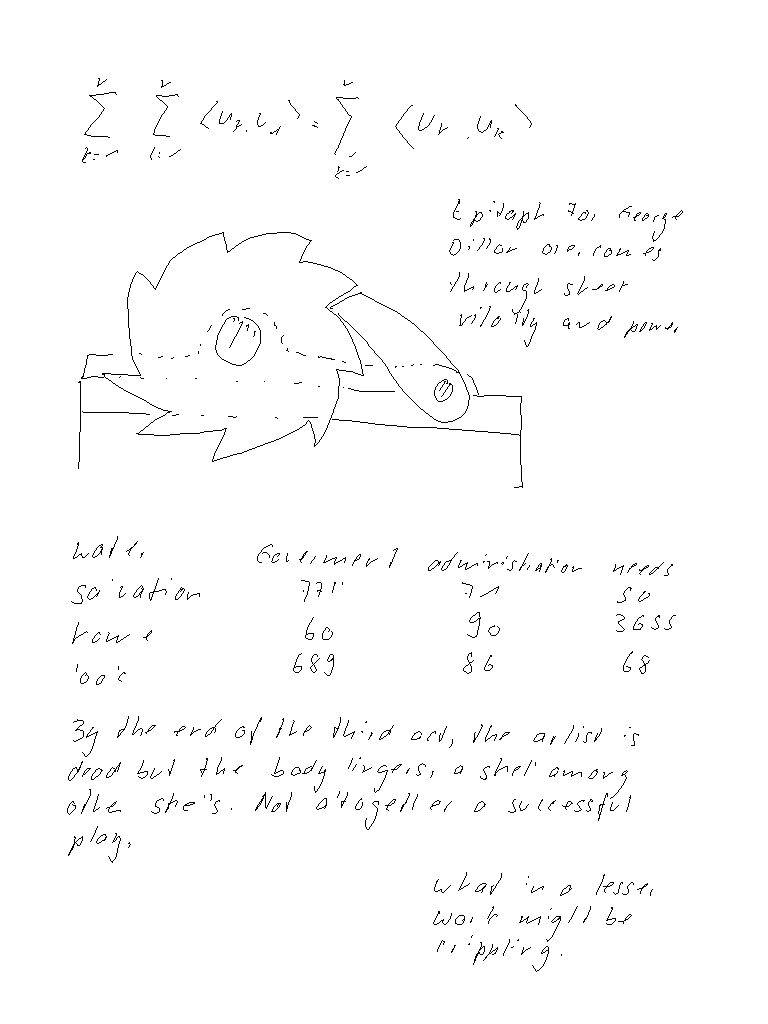 Epitaph for George
Dillon overcomes
through sheer
vitality and power
water Government administration needs
salvation 771 71 50
rowe 60 90 3655
look 689 86 68
By the end of the third act, the artist is
dead but the body lingers, a shell among
other shells. Not altogether a successful
play,
what in a lesser
work might be
crippling.